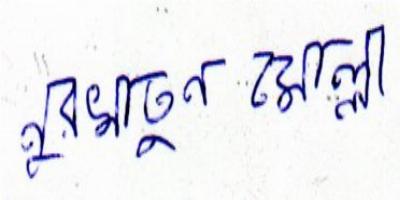 নুরখাতুন মোল্লা